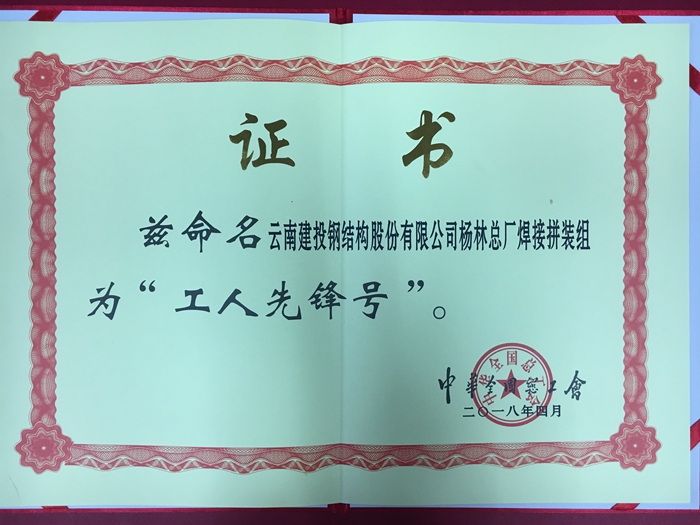 证 书
兹命名云南建投钢结构股份有限公司杨林总厂焊接拼装组
为“工人先锋号”。
中华全国总工会
中華全國總工會
二〇一八年四月